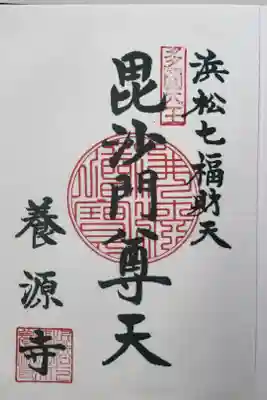 浜松七福財天
多聞天王
毘沙門尊天
養源寺